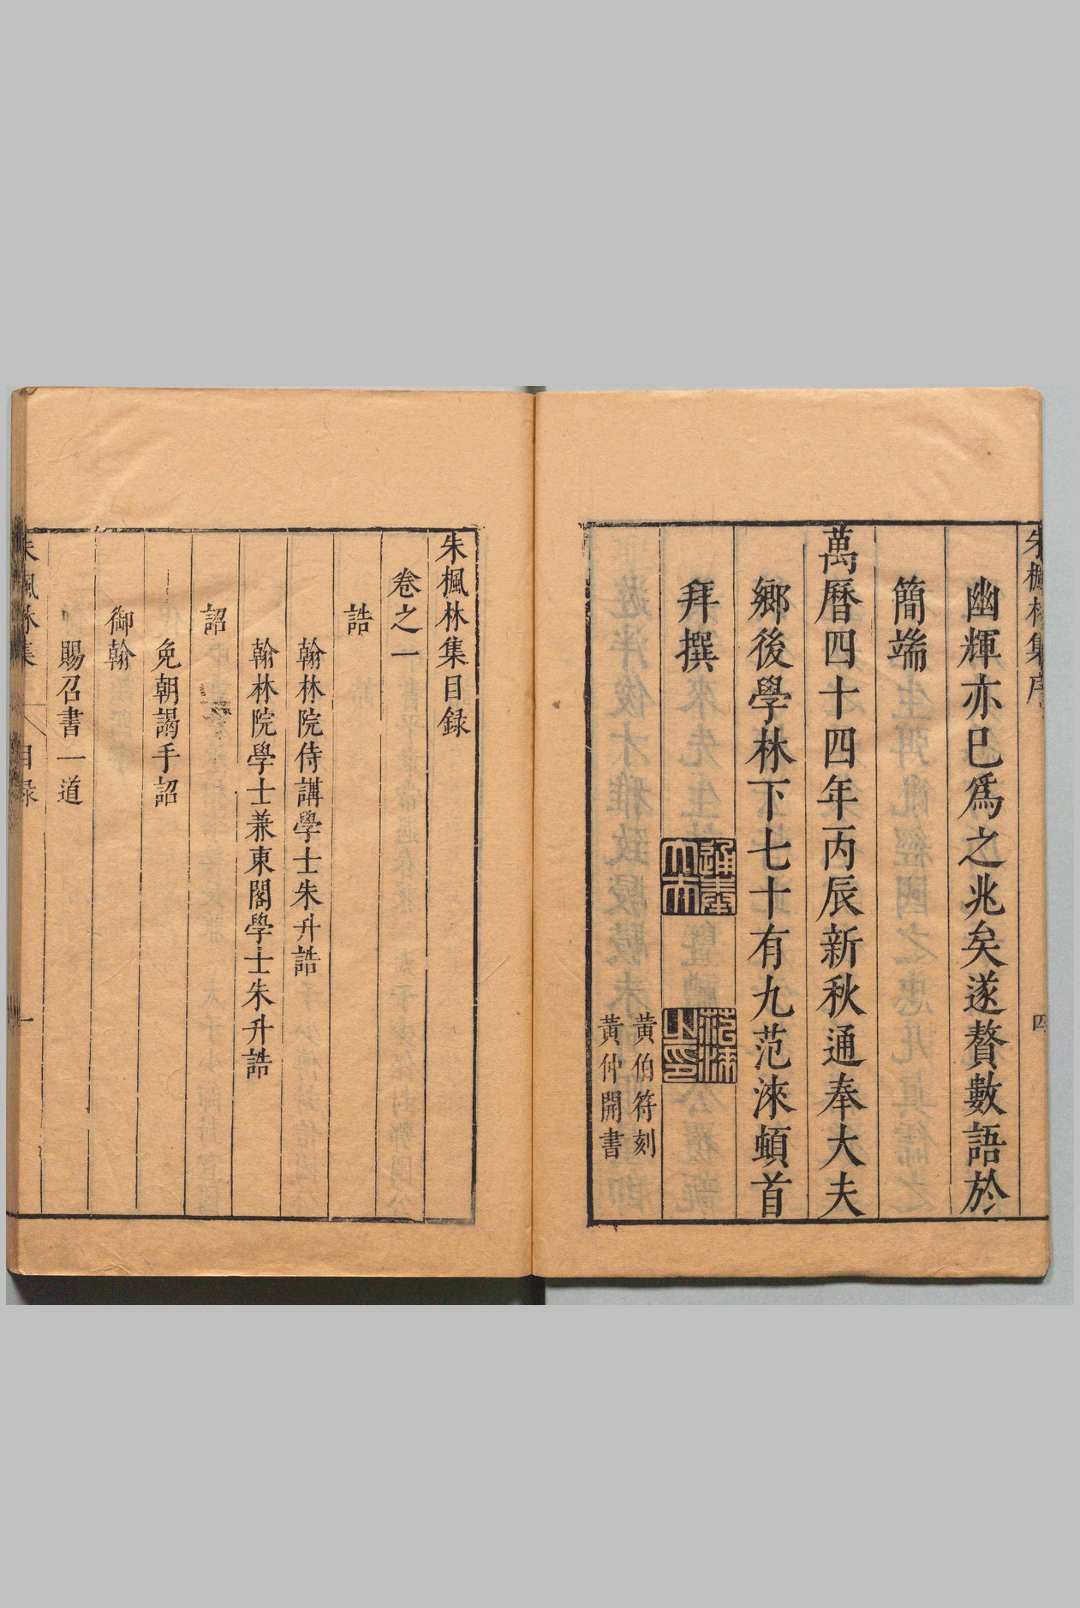 朱楓林集序
四
幽輝亦已爲之兆矣遂贅數語於
簡端
萬曆四十四年丙辰新秋通奉大夫
鄉後學林下七十有九范淶頓首
拜撰
通奉大夫
范淶之印
黃伯符刻
黃仲開書
朱楓林集目錄
卷之一
誥
翰林院侍講學士朱升誥
翰林院學士兼東閣學士朱升誥
詔
免朝謁手詔
御翰
賜召書一道
朱楓林集
目錄
一